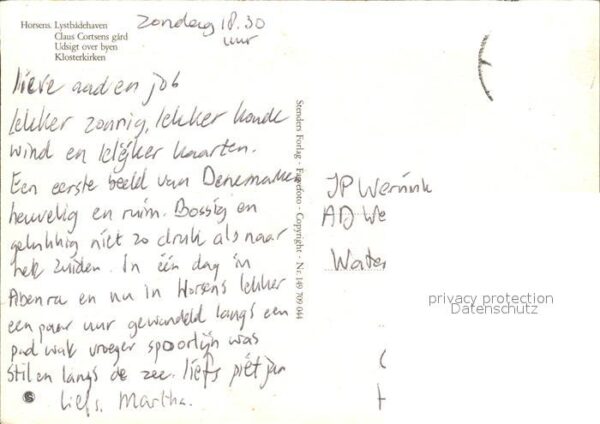 Horsens. Lystbådehaven
Claus Cortsens gård
Udsigt over byen
Klosterkirken
zondag 18.30
uur
lieve aad en job
lekker zonnig, lekker koude
wind en lelijker kaarten.
Een eerste beeld van Denemarken
heuvelig en ruim. Bossig en
gelukkig niet zo druk als naar
het zuiden. In één dag in
Abenra en nu in Horsens lekker
een paar uur gewandeld langs een
pad wat vroeger spoorlijn was
stil en langs de zee. liefs piet jan
liefs. Martha.
Stenders Forlag - Fagefoto - Copyright - Nr. 149 709 044
JP Wernink
AD We
Water
privacy protection
Datenschutz